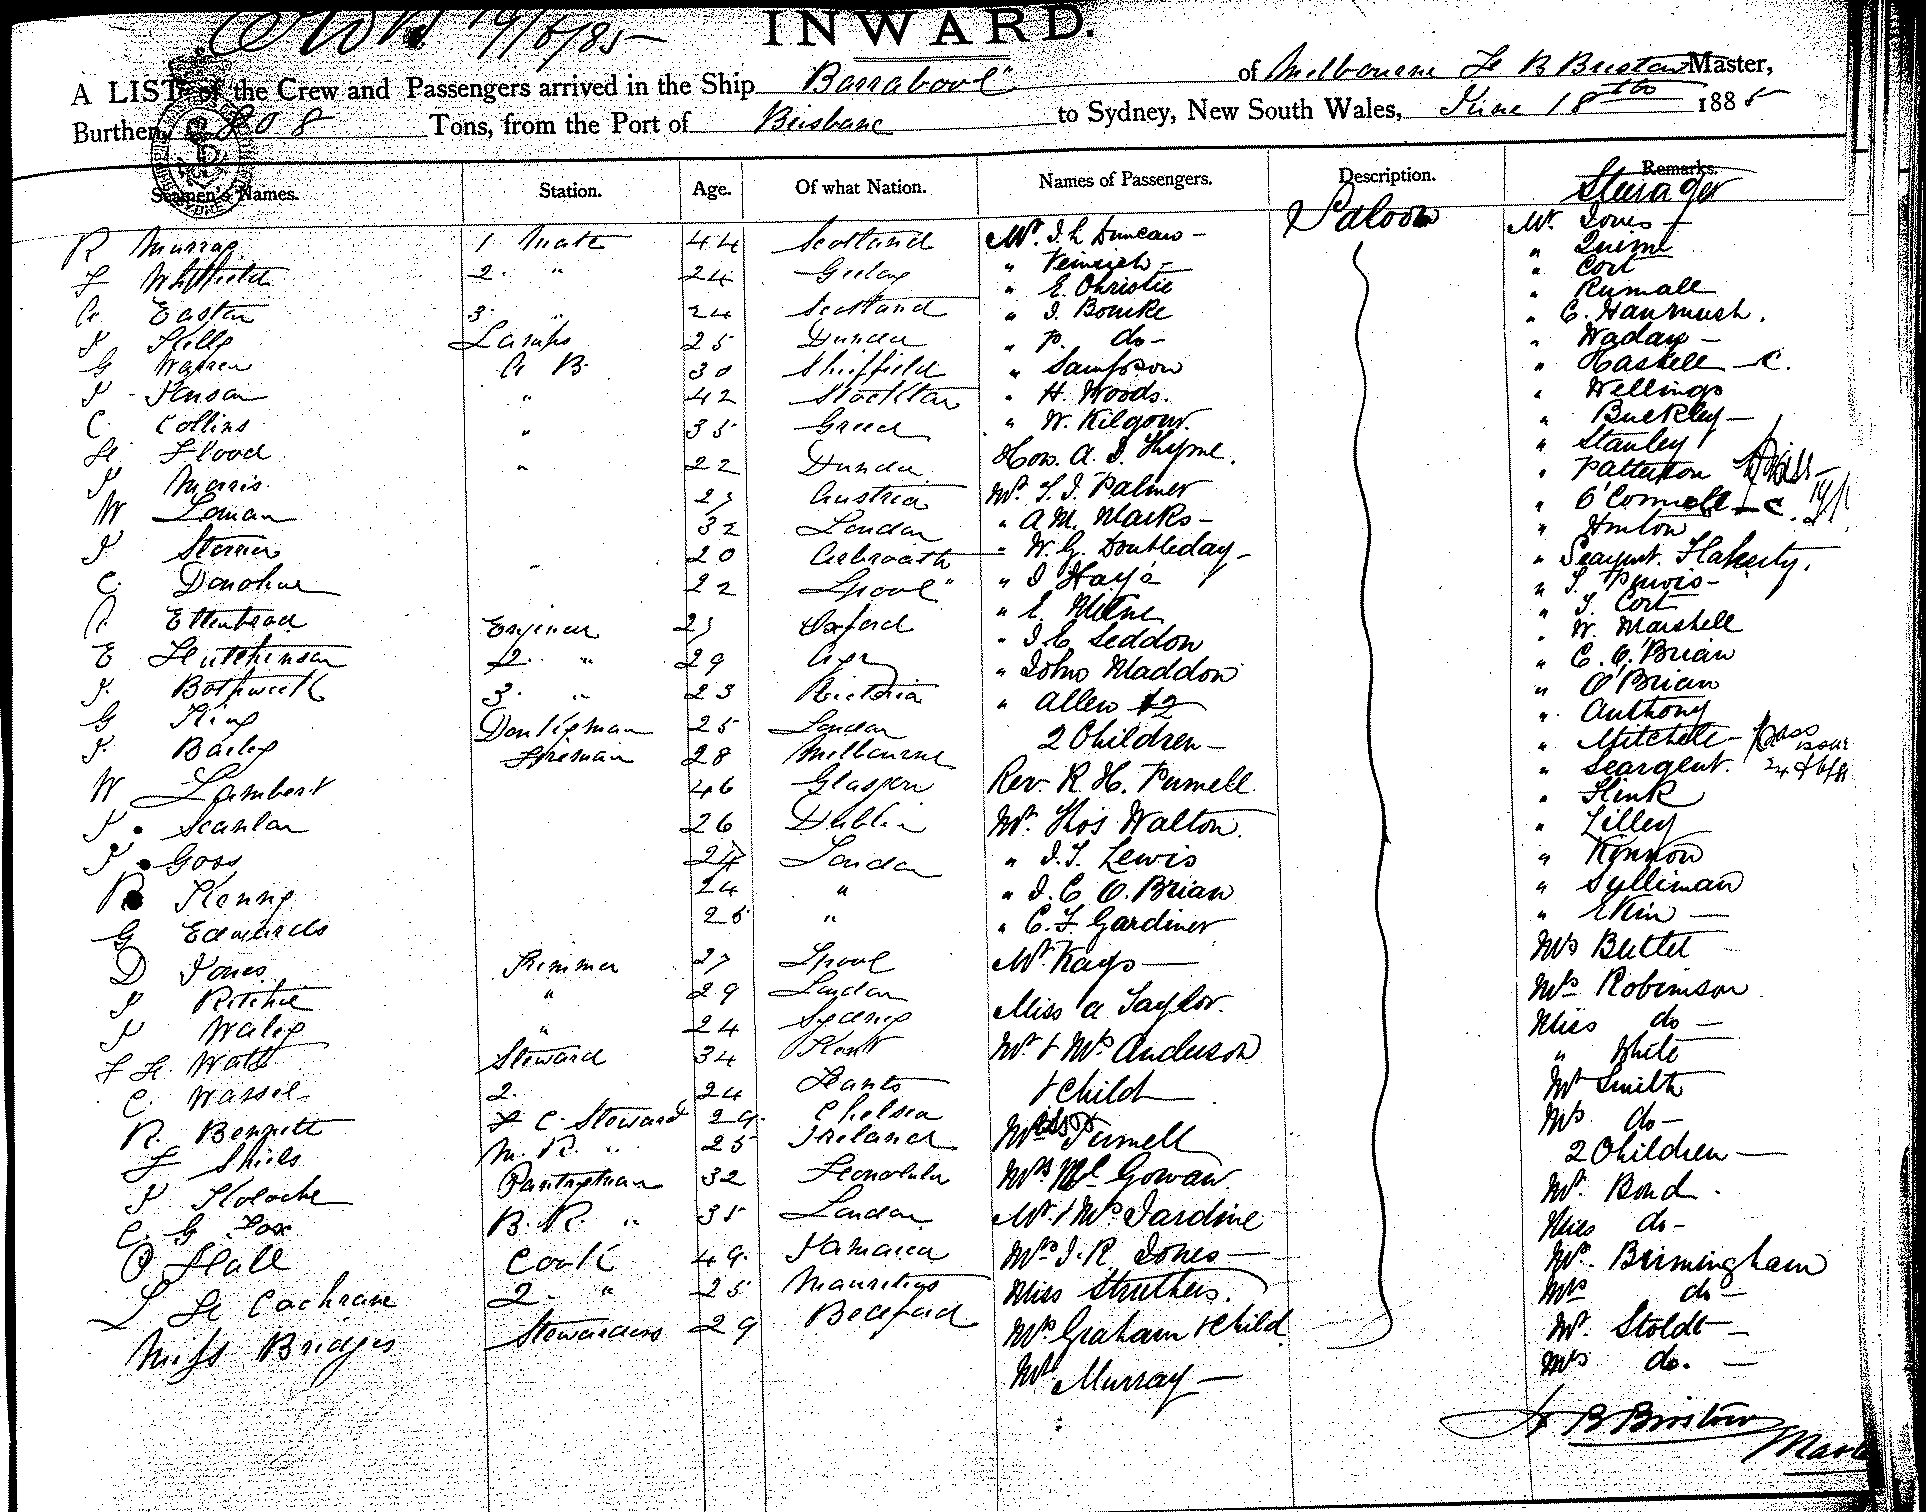 19/6/85
INWARD.
A LIST of the Crew and Passengers arrived in the Ship "Barrabool" of Melbourne B Bristow Master,
Burthen 808 Tons, from the Port of Brisbane to Sydney, New South Wales, June 18th 1885
Seamen's Names. Station. Age. Of what Nation. Names of Passengers. Description. Remarks.
Saloon Steerage
R Murray 1 Mate 44 Scotland Mr. J. L Duncan - Mr. Jones -
Whitfield 2. " 24 " Heinrich -
Easton 3. " 24 Scotland " E. Christie " Cort
Kelly Lamps 25 Dundee " J. Bourke " Rumall
G Warren A B. 30 Sheffield " P. do - " C.
Jenson " 42 Stockton " Sampson " Waday -
C. Collins " 35 Greece " H. Woods. " Haskell - C.
H. Flood " 22 Dundee " W. Kilgour. " Wellings
Morris 27 Austria Hon. A. J. Thyne. " Buckley -
W Loman 32 London Mr. T. J. Palmer " Stanley
20 Arbroath " A M. Marks - " Patterson
C. Donohue 22 Lpool " " W. G. Doubleday - " O'Connell - C.
Engineer 27 Oxford " J Hays " Hinton
E Hutchinson 2. " 29 " E. Milne " Seargnt. Flaherty.
J. Bothwick 3. " 23 Victoria " J. C Seddon " T. Purvis -
G King Donkeyman 25 London " John Maddon " T. Cort
J. Bailey Fireman 28 Melbourne " Allen " W. Marshell
W Lambert 46 Glasgow 2 Children - " C. O. Brian
J. Scanlan 26 Dublin Rev. R. H. Purnell. " O'Brian
J. Goss 24 London Mr. Thos Walton. " Anthony
R Kenny 24 " " J. T. Lewis " Mitchell -
G Edwards 25 " " J. C O. Brian " Seargent.
D Jones Trimmer 27 Lpool " C. F. Gardiner " Flink
J Ritchie " 29 London Mr. Kays - " Lilley
J Waley " 24 Sydney Miss A Taylor. " Kennon
F H. Watt Steward 34 Kent Mr. & Mrs Anderson " Sylliman
C. Wassel 2. 24 Hants & Child - " Ekin -
R. Bennett F C. Steward 29. Chelsea Purnell Mrs Buttel
F Shiels M. R. " 25 Ireland Mrs Mc Gowan Mrs Robinson
Pantryman 32 Honolulu Mr. & Mrs Jardine Miss do -
C. G. Fox B. R. " 35 London Mrs J. R. Jones - " White
O Hall Cook 49. Jamaica Miss Struthers. Mr Smith
H Cochrane 2. " 25 Mauritius Mrs Graham & Child Mrs do -
Miss Bridges Stewardess 29 Bedford Mr. Murray - 2 Children -
Mr. Bond.
Miss do -
Mr. Birmingham
Mrs do -
Mr. Stoldt -
Mrs do. -
B Bristow